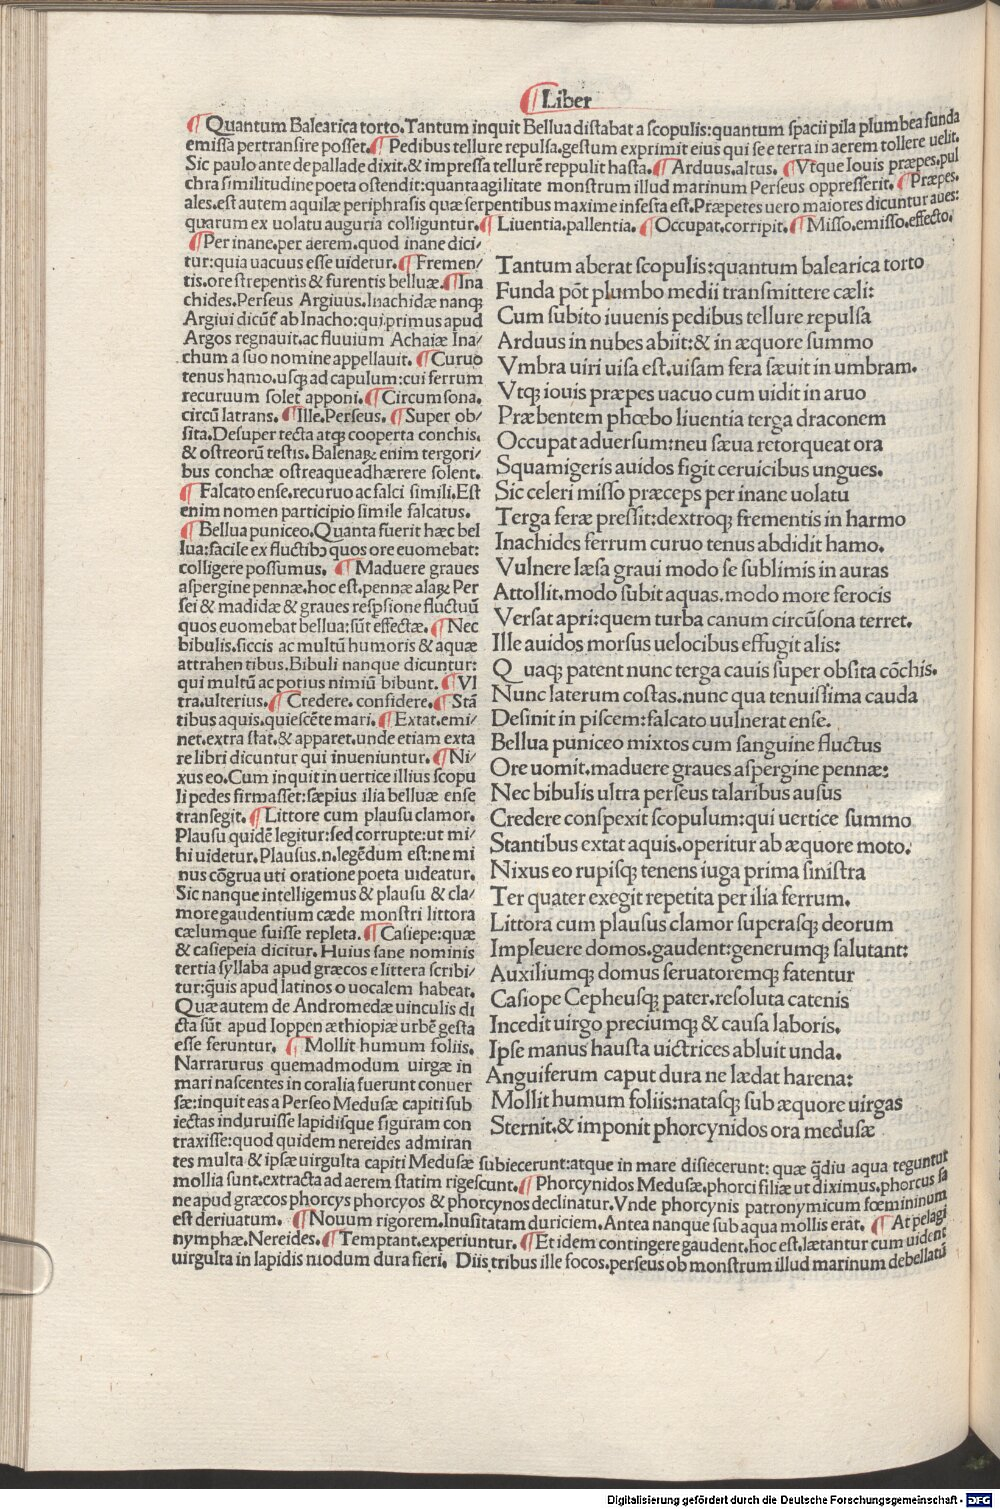 ¶Liber
¶Quantum Balearica torto.Tantum inquit Bellua distabat a scopulis:quantum spacii pila plumbea funda
emissa pertransire posset.¶Pedibus tellure repulsa.gestum exprimit eius qui se e terra in aerem tollere uelit.
Sic paulo ante de pallade dixit.& impressa tellurē reppulit hasta.¶Arduus.altus.¶Vtque Iouis præpes.pul
chra similitudine poeta ostendit:quanta agilitate monstrum illud marinum Perseus oppresserit.¶Præpes.
ales.est autem aquilæ periphrasis quæ serpentibus maxime infesta est.Præpetes uero maiores dicuntur aues:
quarum ex uolatu auguria colliguntur.¶Liuentia.pallentia.¶Occupat.corripit.¶Misso.emisso.effecto.
¶Per inane.per aerem.quod inane dici/
tur:quia uacuus esse uidetur.¶Fremen/
tis.ore strepentis & furentis belluæ.¶Ina
chides.Perseus Argiuus.Inachidæ nanqꝫ
Argiui dicūt̄ ab Inacho:qui primus apud
Argos regnauit.ac fluuium Achaiæ Ina/
chum a suo nomine appellauit.¶Curuo
tenus hamo.usqꝫ ad capulum:cui ferrum
recuruum solet apponi.¶Circumsona.
circū latrans.¶Ille.Perseus.¶Super ob/
sita.Desuper tecta atqꝫ cooperta conchis.
& ostreorū testis.Balenaꝝ enim tergori/
bus conchæ ostreaque adhærere solent.
¶Falcato ense.recuruo ac falci simili.Est
enim nomen participio simile falcatus.
¶Bellua puniceo.Quanta fuerit hæc bel
lua:facile ex fluctibꝫ quos ore euomebat:
colligere possumus.¶Maduere graues
aspergine pennæ.hoc est.pennæ alaꝝ Per
sei & madidæ & graues respsione fluctuū
quos euomebat bellua:sūt effectæ.¶Nec
bibulis.siccis ac multū humoris & aquæ
attrahentibus.Bibuli nanque dicuntur:
qui multū ac potius nimiū bibunt.¶Vl
tra.ulterius.¶Credere.confidere.¶Stā
tibus aquis.quiescēte mari.¶Extat.emi/
net.extra stat.& apparet.unde etiam exta
re libri dicuntur qui inueniuntur.¶Ni/
xus eo.Cum inquit in uertice illius scopu
li pedes firmasset:sæpius ilia belluæ ense
transegit.¶Littore cum plausu clamor.
Plausu quidē legitur:sed corrupte:ut mi/
hi uidetur.Plausus.n.legēdum est:ne mi
nus cōgrua uti oratione poeta uideatur.
Sic nanque intelligemus & plausu & cla/
more gaudentium cæde monstri littora
cælumque fuisse repleta.¶Casiepe:quæ
& casiepeia dicitur.Huius sane nominis
tertia syllaba apud græcos e littera scribi/
tur:quis apud latinos o uocalem habeat.
Quæ autem de Andromedæ uinculis di
cta sūt apud Ioppen æthiopiæ urbē gesta
esse feruntur.¶Mollit humum foliis.
Narrarurus quemadmodum uirgæ in
mari nascentes in coralia fuerunt conuer
sæ:inquit eas a Perseo Medusæ capiti sub
iectas induruisse lapidisque figuram con
traxisse:quod quidem nereides admiran
Tantum aberat scopulis:quantum balearica torto
Funda pōt plumbo medii transmittere cæli:
Cum subito iuuenis pedibus tellure repulsa
Arduus in nubes abiit:& in æquore summo
Vmbra uiri uisa est.uisam fera sæuit in umbram.
Vtqꝫ iouis præpes uacuo cum uidit in aruo
Præbentem phœbo liuentia terga draconem
Occupat aduersum:neu sæua retorqueat ora
Squamigeris auidos figit ceruicibus ungues.
Sic celeri misso præceps per inane uolatu
Terga feræ pressit:dextroqꝫ frementis in harmo
Inachides ferrum curuo tenus abdidit hamo.
Vulnere læsa graui modo se sublimis in auras
Attollit.modo subit aquas.modo more ferocis
Versat apri:quem turba canum circūsona terret.
Ille auidos morsus uelocibus effugit alis:
Quaqꝫ patent nunc terga cauis super obsita cōchis.
Nunc laterum costas.nunc qua tenuissima cauda
Desinit in piscem:falcato uulnerat ense.
Bellua puniceo mixtos cum sanguine fluctus
Ore uomit.maduere graues aspergine pennæ:
Nec bibulis ultra perseus talaribus ausus
Credere conspexit scopulum:qui uertice summo
Stantibus extat aquis.operitur ab æquore moto.
Nixus eo rupisqꝫ tenens iuga prima sinistra
Ter quater exegit repetita per ilia ferrum.
Littora cum plausus clamor superasqꝫ deorum
Impleuere domos.gaudent:generumqꝫ salutant:
Auxiliumqꝫ domus seruatoremqꝫ fatentur
Casiope Cepheusqꝫ pater.resoluta catenis
Incedit uirgo preciumqꝫ & causa laboris.
Ipse manus hausta uictrices abluit unda.
Anguiferum caput dura ne lædat harena:
Mollit humum foliis:natasqꝫ sub æquore uirgas
Sternit.& imponit phorcynidos ora medusæ
tes multa & ipsæ uirgulta capiti Medusæ subiecerunt:atque in mare disiecerunt: quæ q̄diu aqua teguntut
mollia sunt.extracta ad aerem statim rigescunt.¶Phorcynidos Medusæ.phorci filiæ ut diximus.phorcus sa
ne apud græcos phorcys phorcyos & phorcynos declinatur.Vnde phorcynis patronymicum fœmininum
est deriuatum.¶Nouum rigorem.Inusitatam duriciem.Antea nanque sub aqua mollis erāt.¶At pelagi
nymphæ.Nereides.¶Temptant.experiuntur.¶Et idem contingere gaudent.hoc est.lætantur cum uident
uirgulta in lapidis modum dura fieri. Diis tribus ille focos.perseus ob monstrum illud marinum debellatū
Digitalisierung gefördert durch die Deutsche Forschungsgemeinschaft - DFG